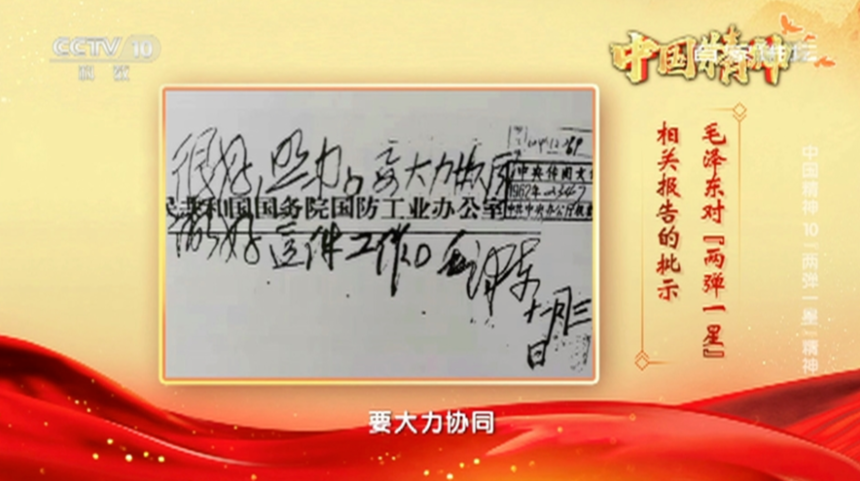 CCTV 10
科教
中国精神
毛泽东对『两弹一星』
相关报告的批示
中国精神10「两弹一星」精神
很好,照办。要大力协同
民共和国国务院国防工业办公室
做好这件工作。毛泽东
十一月三
日
中央传阅文
1962年
要大力协同